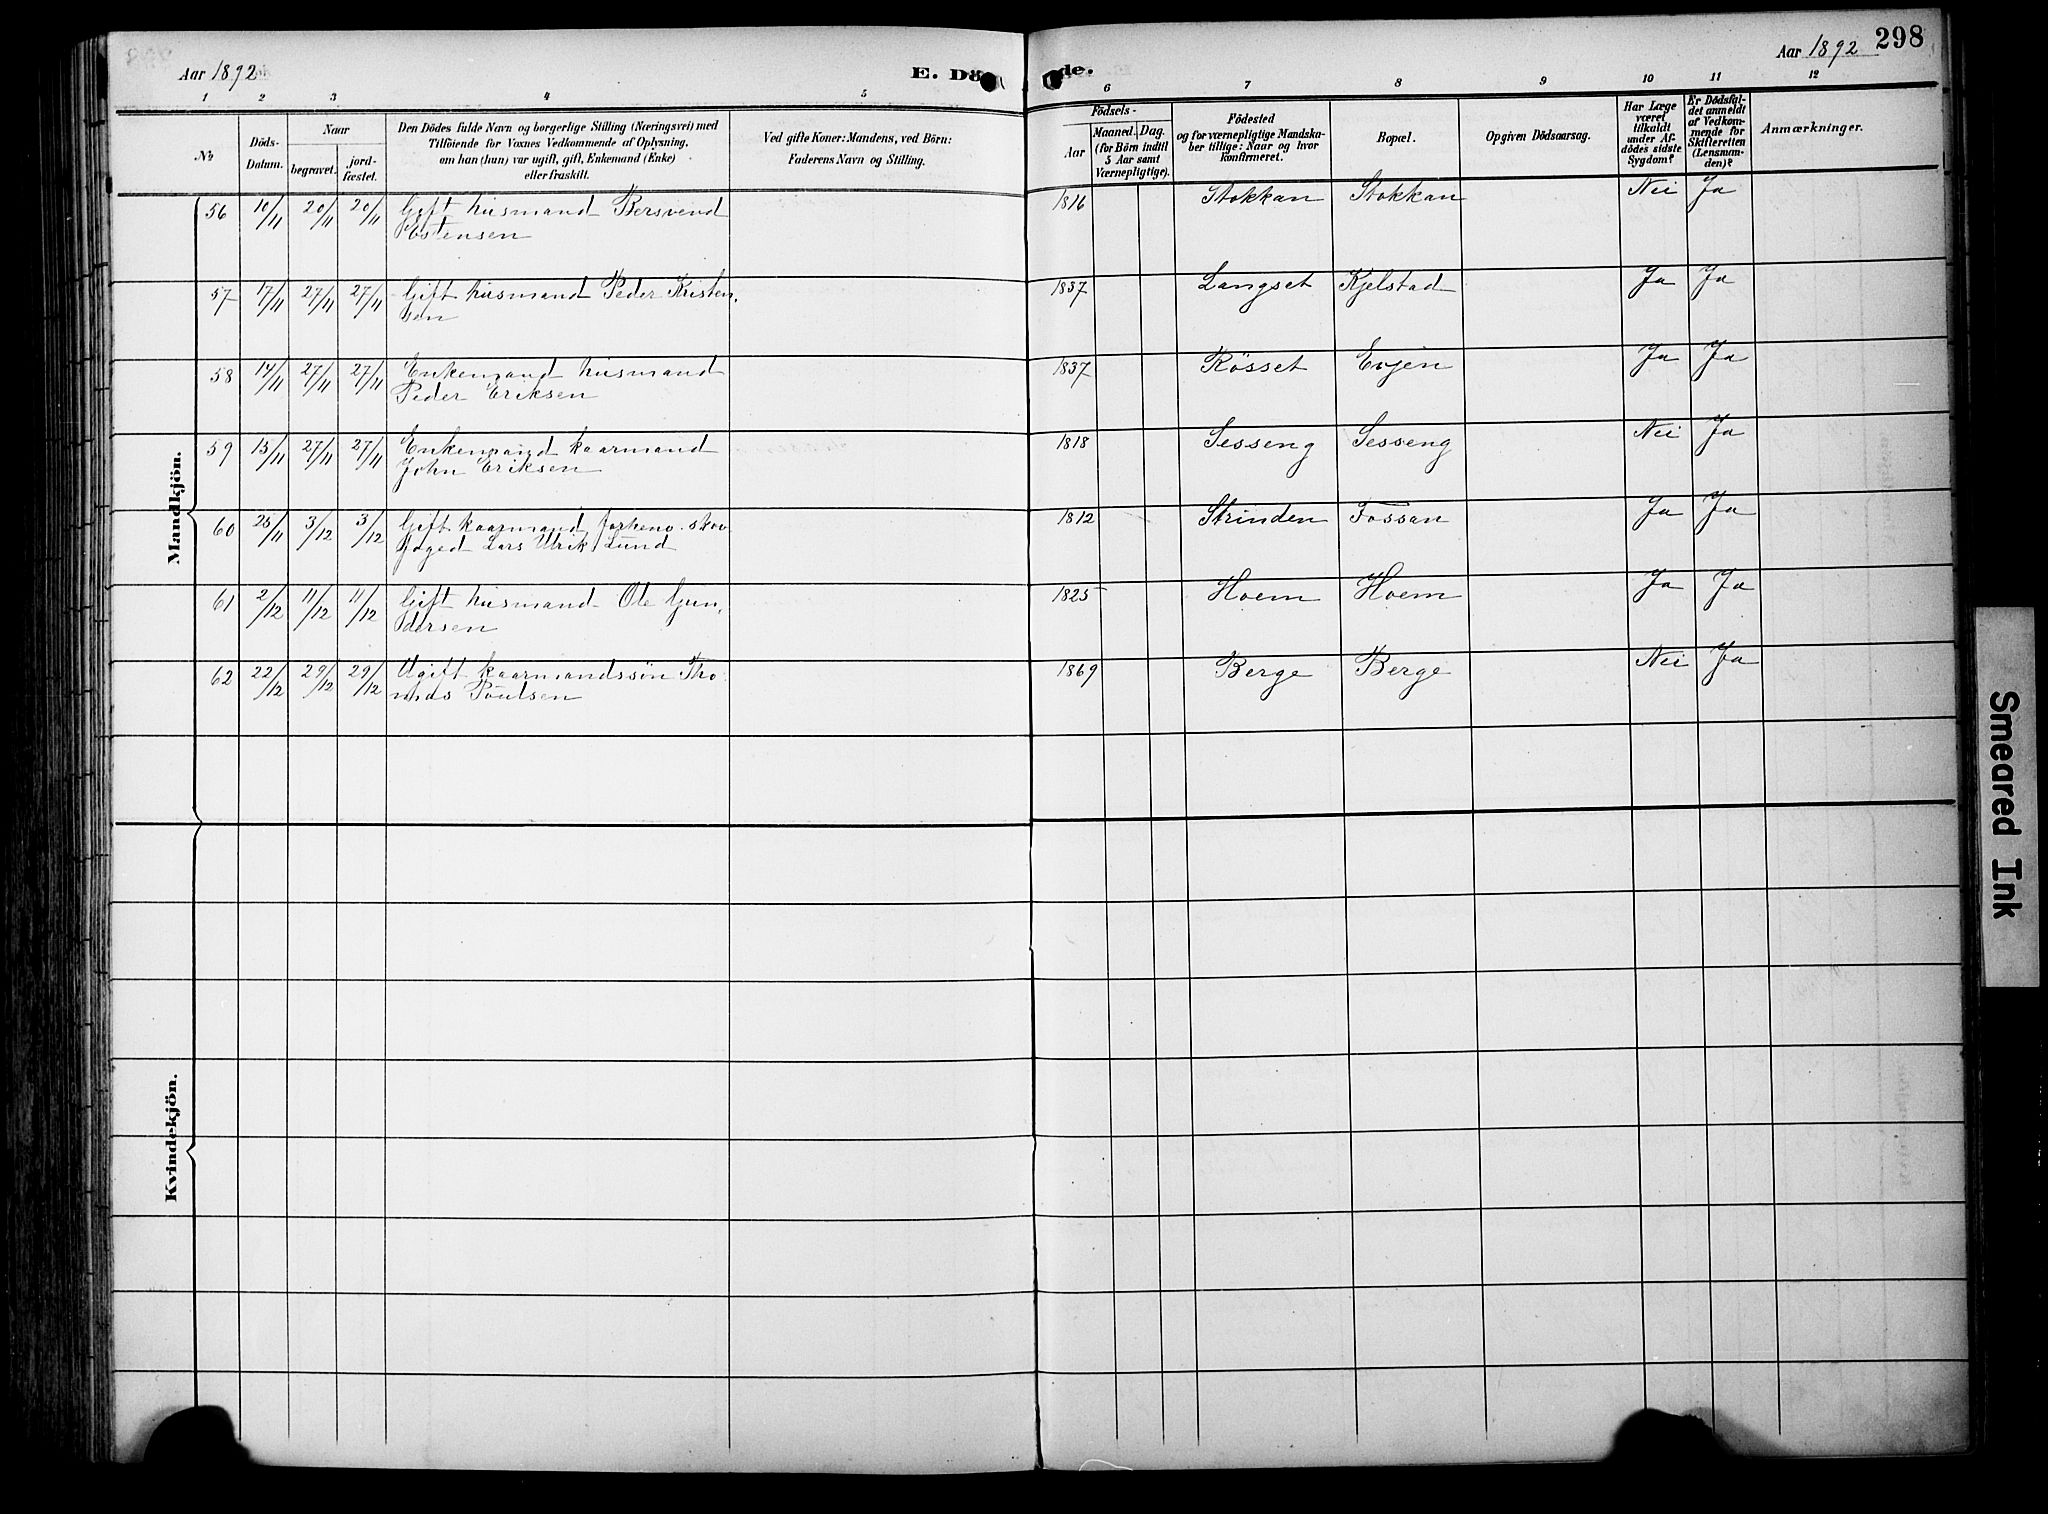 298
Aar 1892
E. Dö
de.
Aar 1892
1 2 3 4 5 6 7 8 9 10 11 12
No
Döds-Datum.
Naar
begravet.
jord-fæstet.
Den Dödes fulde Navn og borgerlige Stilling (Næringsvei) med
Tilföiende for Voxnes Vedkommende af Oplysning,
om han (hun) var ugift, gift, Enkemand (Enke)
eller fraskilt.
Ved gifte Koner: Mandens, ved Börn:
Faderens Navn og Stilling.
Födsels-
Aar
Maaned. Dag.
(for Börn indtil
5 Aar samt
Værnepligtige).
Födested
og for værnepligtige Mandska-
ber tillige: Naar og hvor
konfirmeret.
Bopæl.
Opgiven Dödsaarsag.
Har Læge
været
tilkaldt
under Af-
dödes sidste
Sygdom?
Er Dödsfal-
det anmeldt
af Vedkom-
mende for
Skifteretten
(Lensman-
den)?
Anmærkninger.
Mandkjön.
56 10/11 20/11 20/11 Gift husmand Bersvend 1816 Stokkan Stokkan Nei Ja
Ostensen
57 17/11 27/11 27/11 Gift husmand Peder Kristen- 1837 Langset Kjelstad Ja Ja
sen
58 14/11 27/11 27/11 Enkemand husmand 1837 Rösset Evjen Ja Ja
Peder Eriksen
59 15/11 27/11 27/11 Enkemand kaarmand 1818 Sesseng Sesseng Nei Ja
John Eriksen
60 25/11 3/12 3/12 Gift kaarmand, forhenv. skov 1812 Strinden Fossan Ja Ja
foged Lars Ulrik Lund
61 2/12 11/12 11/12 Gift husmand Ole Gun- 1825 Hoem Hoem Ja Ja
dersen
62 22/12 29/12 29/12 Ugift kaarmandssön Tho- 1869 Berge Berge Nei Ja
mas Poulsen
Kvindekjön.
Smeared Ink